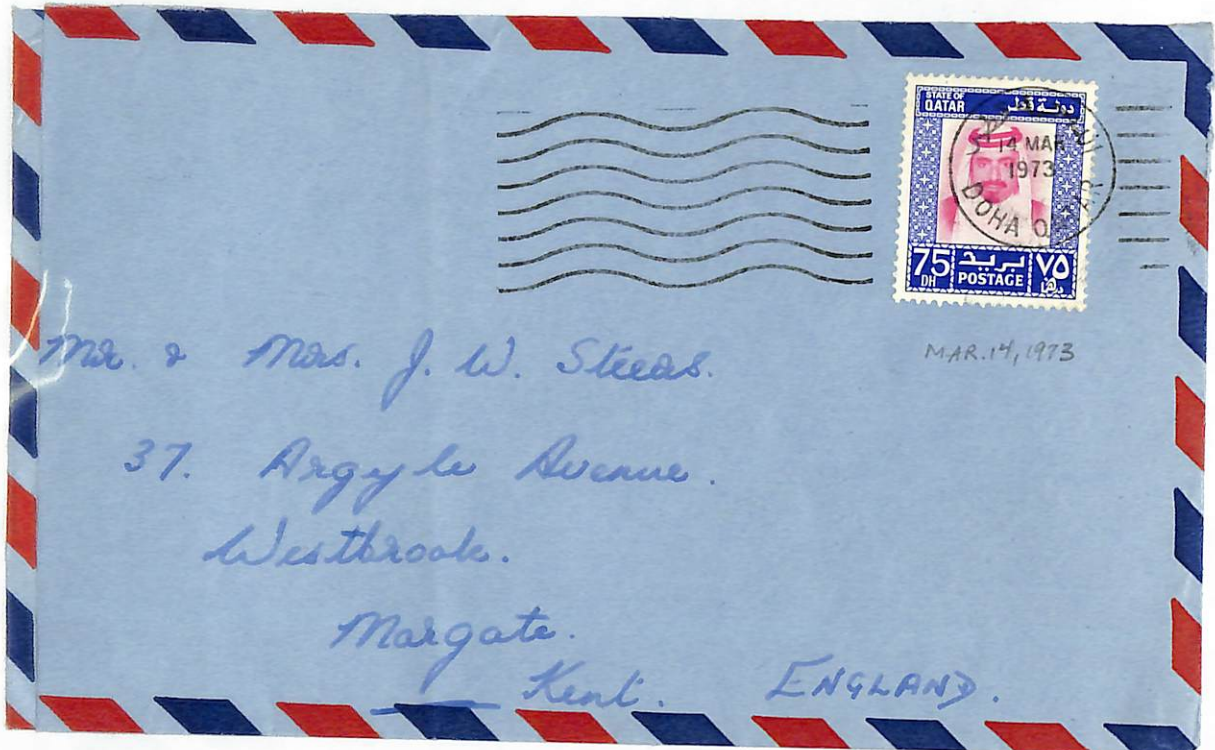 STATE OF QATAR دولة قطر
14 MAR
1973
DOHA QATAR
75 DH بريد POSTAGE ٧٥ درهم
MAR.14,1973
Mr. & Mrs. J. W. Steeds.
37. Argyle Avenue.
Westbrook.
Margate.
Kent. ENGLAND.